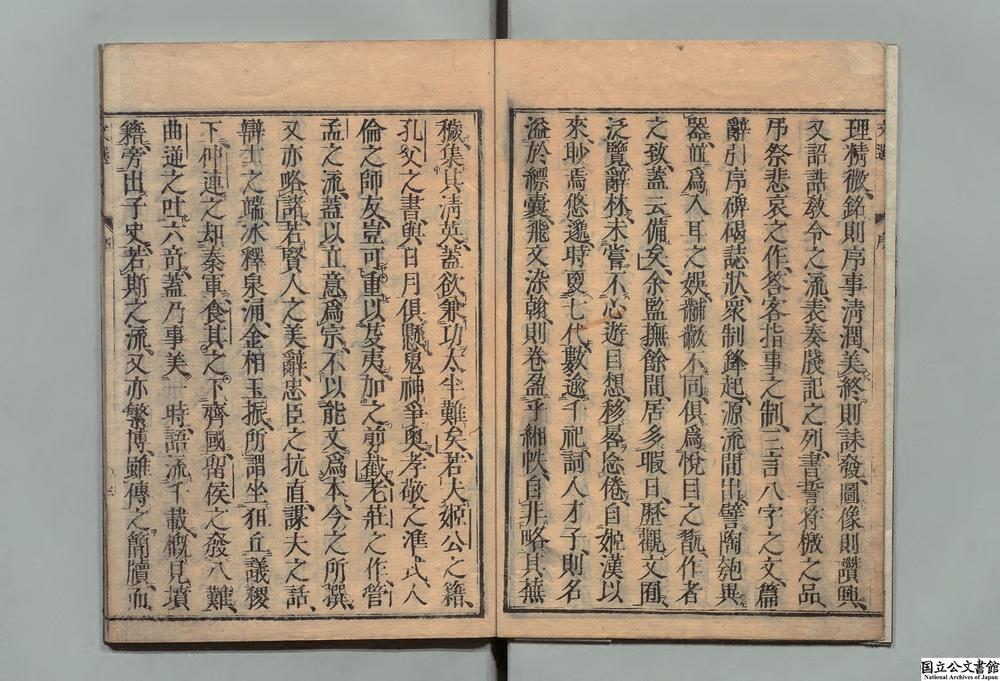 理精微銘則序事淸潤美終則誄發圖像則讚興
又詔誥敎令之流表奏牋記之列書誓符檄之品
弔祭悲哀之作答客指事之制三言八字之文篇
辭引序碑碣誌狀衆制鋒起源流間出譬陶匏異
器並爲入耳之娛黼黻不同俱爲悅目之翫作者
之致蓋云備矣余監撫餘閒居多暇日歷觀文囿
泛覽辭林未嘗不心遊目想移晷忘倦自姬漢以
來眇焉悠邈時更七代數逾千祀詞人才子則名
溢於縹囊飛文染翰則卷盈乎緗帙自非略其蕪
穢集其淸英蓋欲兼功太半難矣若夫姬公之籍
孔父之書與日月俱懸鬼神爭奧孝敬之准式人
倫之師友豈可重以芟夷加之剪截老莊之作管
孟之流蓋以立意爲宗不以能文爲本今之所撰
又亦略諸若賢人之美辭忠臣之抗直謀夫之話
辯士之端冰釋泉涌金相玉振所謂坐狙丘議稷
下仲連之却秦軍食其之下齊國留侯之發八難
曲逆之吐六奇蓋乃事美一時語流千載槪見墳
籍旁出子史若斯之流又亦繁博雖傳之簡牘而
文選
序
三
国立公文書館
National Archives of Japan